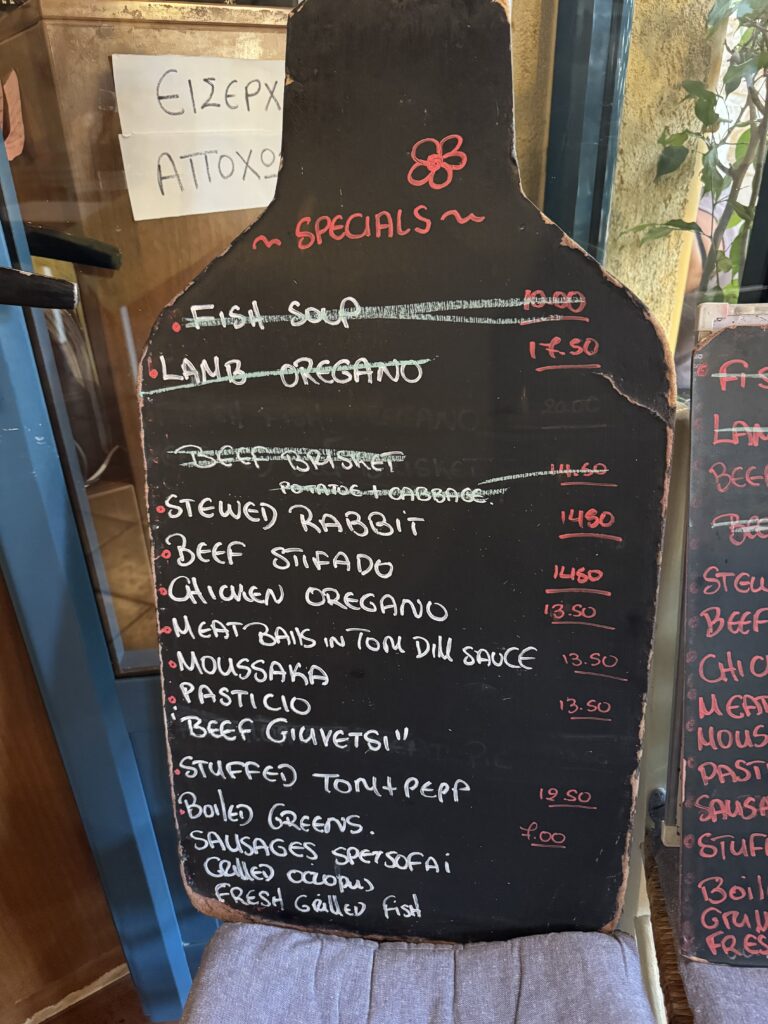 ΕΙΣΕΡΧ
ΑΠΟΧΩ
~ SPECIALS ~
FISH SOUP 10.00
LAMB OREGANO 17.50
BEEF BRISKET
POTATOE + CABBAGE 14.50
STEWED RABBIT 1450
BEEF STIFADO 1450
CHICKEN OREGANO 13.50
MEAT BALLS IN TOM DILL SAUCE 13.50
MOUSSAKA
PASTICIO 13.50
"BEEF GIUVETSI"
STUFFED TOM + PEPP 12.50
BOILED GREENS. 7.00
SAUSAGES SPETSOFAI
GRILLED OCTOPUS
FRESH GRILLED FISH
FIS
LAM
BEEF
BEE
STEW
BEEF
CHIC
MEAT
MOUSS
PAST
SAUSA
STUFF
BOIL
GRILL
FRES